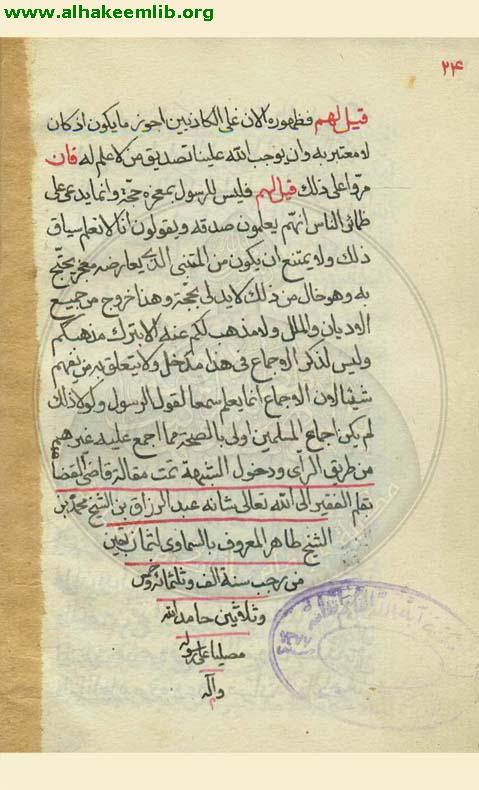 www.alhakeemlib.org
٢۴
قيل لهم فظهوره الان على الكاذبين اجوز ما يكون اذ كان
لا معتبر به وان يوجب الله علينا تصديق من لا علم له فان
مرّوا على ذلك قيل لهم فليس للرسول بمعجزه حجّة وانما يدعى على
الناس انهم يعلمون صدقه ويقولون انا لا نعلم سياق
ذلك ولا يمتنع ان يكون من المتنبى الذى يعارضه معجز يحتجّ
به وهو خال من ذلك لا يدلى بحجة وهذا خروج من جميع
الاديان والملل ولا مذهب لكم عنه الا بترك مذهبكم
وليس لذكر الاجماع فى هذا مدخل ولا يتعلق به من يفهم
شيئا لان الاجماع انما يعلم سمعا لقول الرسول ولولا ذلك
لم يكن اجماع المسلمين اولى بالصحة مما اجمع عليه غيرهم
من طريق الرأى ودخول الشبهة تمت مقالة قاضى القضا
بقلم الفقير الى الله تعالى شانه عبد الرزاق بن الشيخ محمد بن
الشيخ طاهر المعروف بالسماوى لثمان بقين
من رجب سنة الف وثلثمائة وخمس
وثلاثين حامدا لله
مصليا على رسوله
وآله